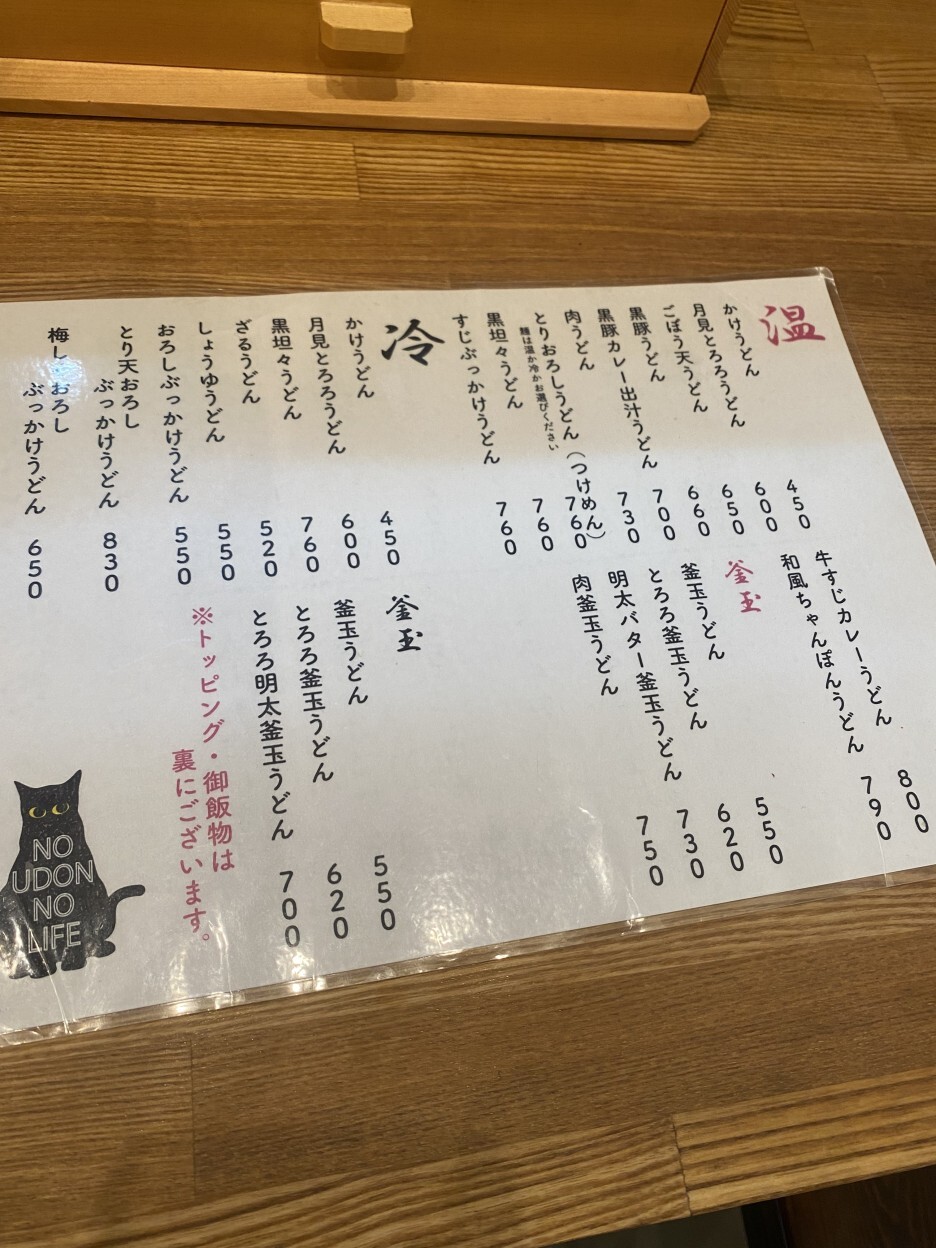 温
かけうどん 450
月見とろろうどん 600
ごぼう天うどん 650
黒豚うどん 660
黒豚カレー出汁うどん 700
肉うどん 730
とりおろしうどん（つけめん） 760
麺は温か冷かお選びください
黒坦々うどん 760
すじぶっかけうどん 760
牛すじカレーうどん 800
和風ちゃんぽんうどん 790
釜玉
釜玉うどん 550
とろろ釜玉うどん 620
明太バター釜玉うどん 730
肉釜玉うどん 750
冷
かけうどん 450
月見とろろうどん 600
黒坦々うどん 760
ざるうどん 520
しょうゆうどん 550
おろしぶっかけうどん 550
とり天おろし
ぶっかけうどん 830
梅しそおろし
ぶっかけうどん 650
釜玉
釜玉うどん 550
とろろ釜玉うどん 620
とろろ明太釜玉うどん 700
※トッピング・御飯物は
裏にございます。
NO
UDON
NO
LIFE